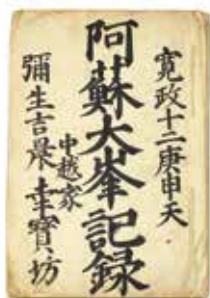 寛政十二庚申天
阿蘇大峯記録
中越家
彌生吉晁 幸寳坊